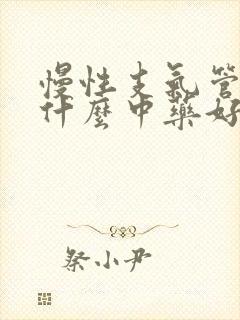 慢性支氣管
什麼中藥好
祭小尹